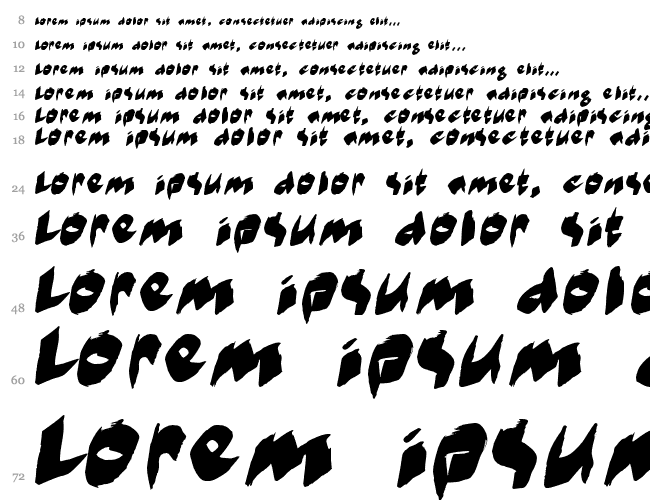 8 Lorem ipsum dolor sit amet, consectetuer adipiscing elit...
10 Lorem ipsum dolor sit amet, consectetuer adipiscing elit...
12 Lorem ipsum dolor sit amet, consectetuer adipiscing elit...
14 Lorem ipsum dolor sit amet, consectetuer adipiscing elit..
16 Lorem ipsum dolor sit amet, consectetuer adipiscing
18 Lorem ipsum dolor sit amet, consectetuer adi
24 Lorem ipsum dolor sit amet, conse
36 Lorem ipsum dolor sit
48 Lorem ipsum dolo
60 Lorem ipsum
72 Lorem ipsum